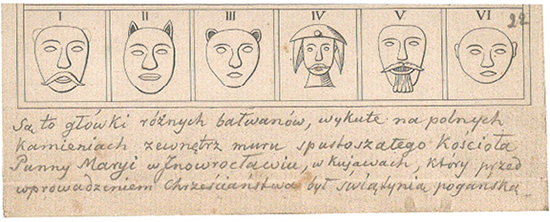 I II III IV V VI 22
Są to główki różnych bałwanów, wykute na polnych
kamieniach zewnętrz muru spustoszałego Kościoła
Panny Maryi w Jnowrocławiu, w Kujawach, który przed
wprowadzeniem Chrześciaństwa był świątynią pogańską.